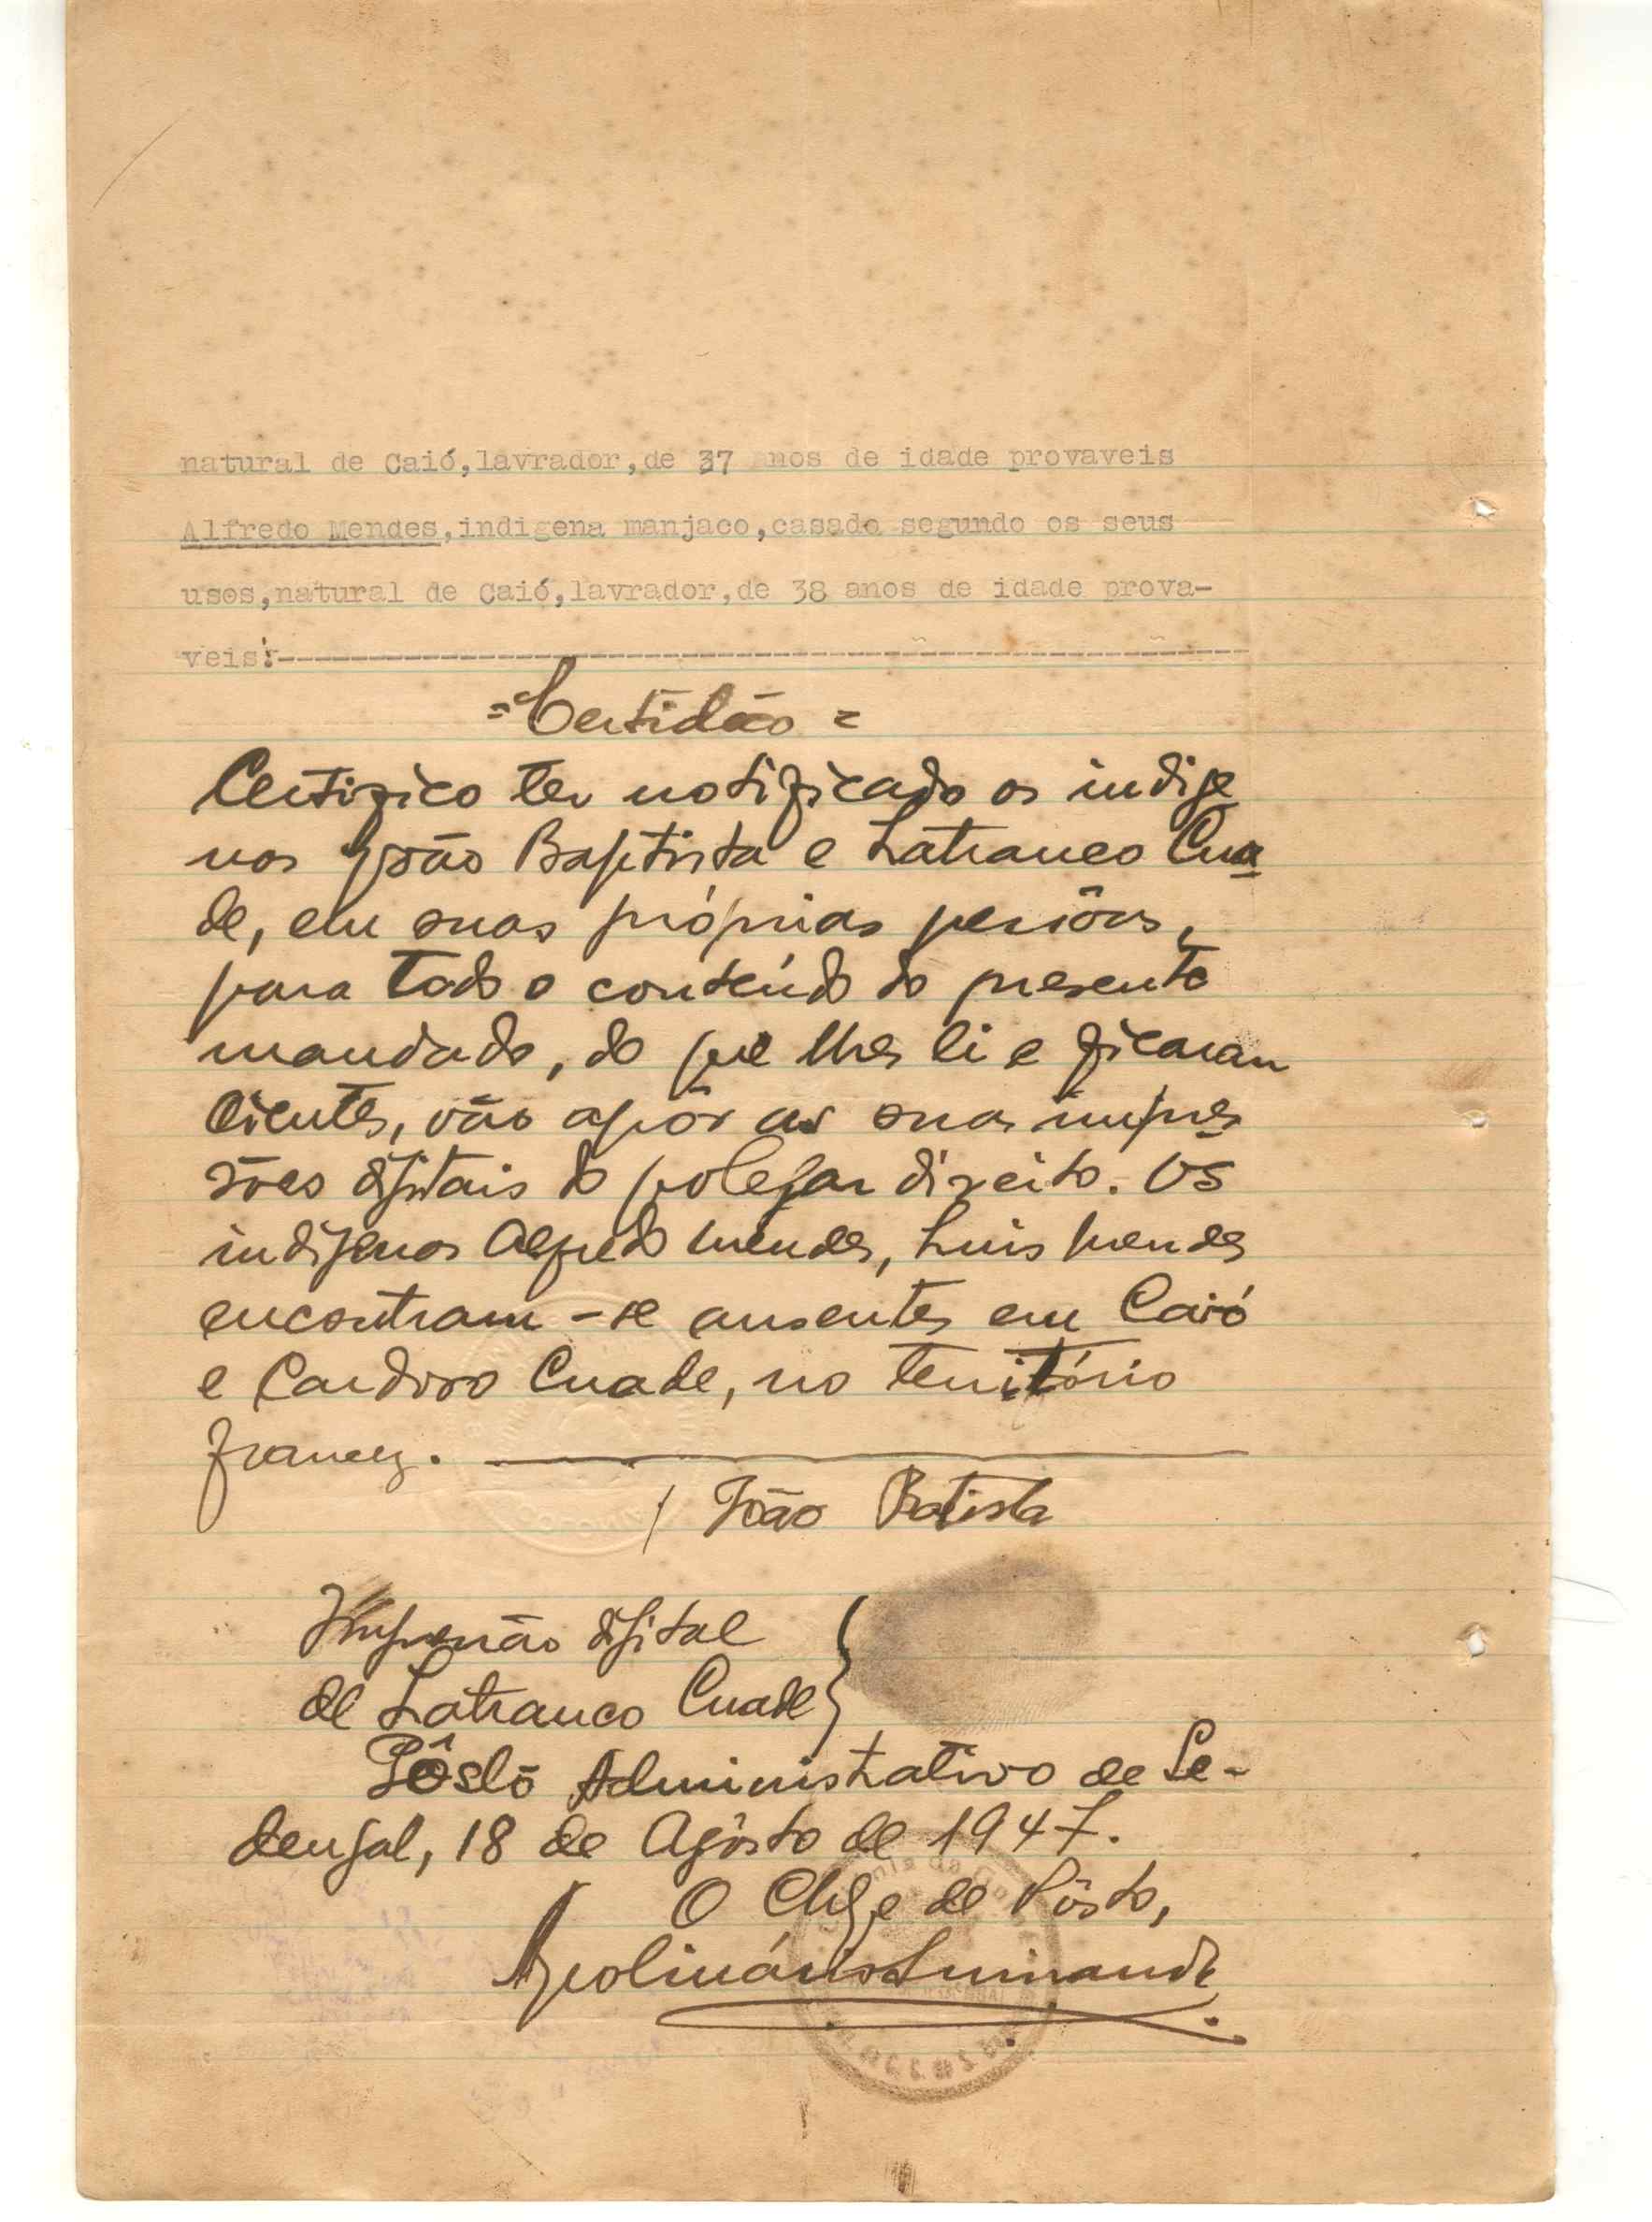 natural de Caió,lavrador,de 37 anos de idade provaveis
Alfredo Mendes,indigena manjaco,casado segundo os seus
usos,natural de Caió,lavrador,de 38 anos de idade prova-
veis:-
=Certidão=
Certifico ter notificado os indige
nas João Baptista e Latranco Cua
de, em suas próprias pessôas,
para todo o conteúdo do presente
mandado, do que lhes li e ficaram
cientes, vão apôr as suas impres
sões digitais do polegar direito. Os
indigenas Alfredo Mendes, Luis Mendes
encontram-se ausentes em Caió
e Cardoso Cuade, no território
francez.
João Batista
Impressão digital
de Latranco Cuade
Pôsto Administrativo de Se-
dengal, 18 de Agôsto de 1947.
O Chefe de Pôsto,
Apolinário